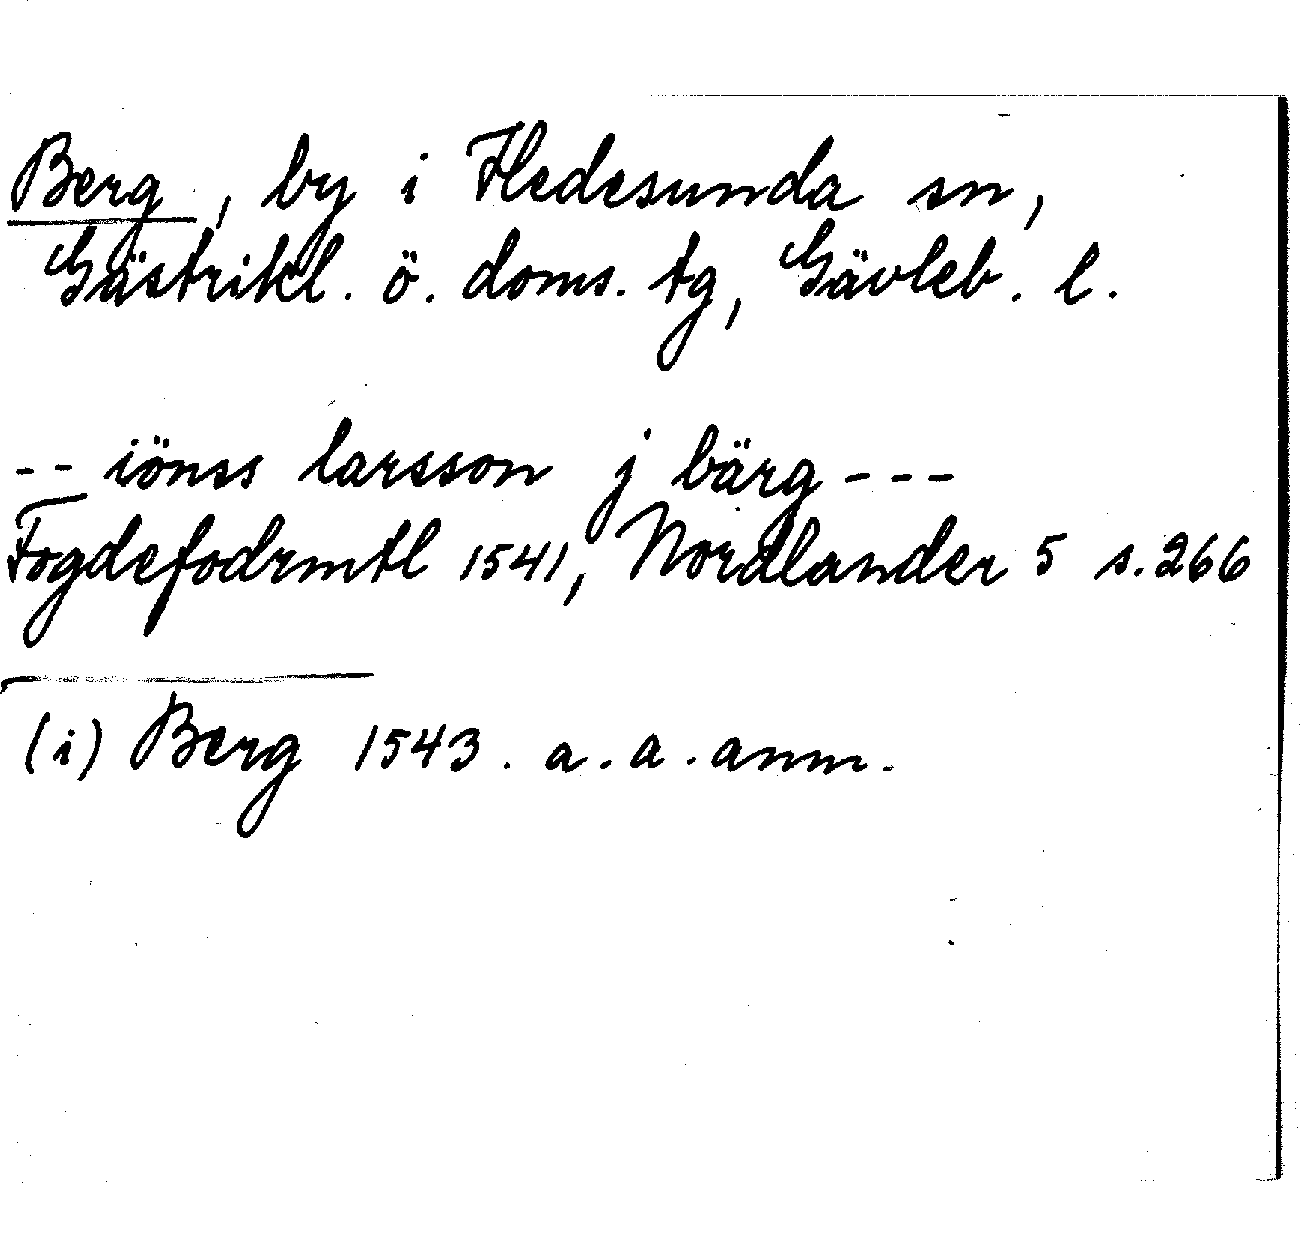 Berg, by i Hedesunda sn,
Gästrikl. ö. doms. tg, Gävleb. l.
-- iönss larsson j bärg ---
Fogdefodrmtl 1541, Nordlander 5 s. 266
(i) Berg 1543. a. a. anm.